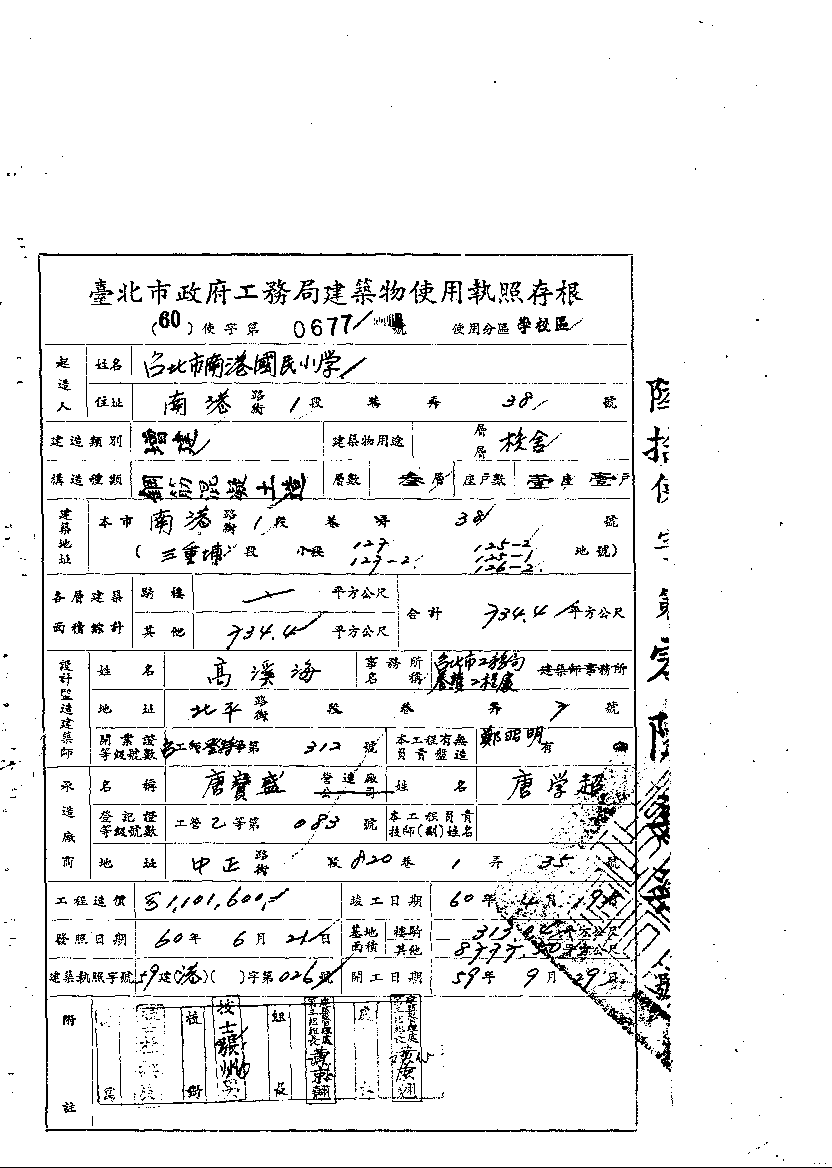 臺北市政府工務局建築物使用執照存根
(60)使字第 0677 號 使用分區 學校區
起造人 姓名 台北市南港國民小学
住址 南港 路街 1 段 巷 弄 38 號
建造類別 增建 建築物用途 層層 校舍
構造種類 鋼筋混凝土造 層數 叁層 座戶數 壹座 壹戶
建築地址 本市 南港 路街 1 段 巷 弄 38 號
(三重埔 段 小段 127 127-2 125-2 125-1 126-2 地號)
各層建築面積總計 騎樓 平方公尺 合計 734.4 平方公尺
其他 734.4 平方公尺
設計監造建築師 姓名 高溪海 事務所名稱 台北市工務局養護工程處 建築師事務所
地址 北平 路街 段 巷 弄 7 號
開業證等級號數 等第 312 號 本工程有無員責監造 鄭昭明 有
承造廠商 名稱 唐寶盛 營造廠公司 姓名 唐学超
登記證等級號數 工營乙等第 083 號 本工程員責技師(副)姓名
地址 中正 路街 段 820 巷 1 弄 35 號
工程造價 1,101,600 竣工日期 60年 4月 19日
發照日期 60年 6月 21日 基地面積 樓騎 平方公尺
其他 平方公尺
建築執照字號 59建(港)( )字第026號 開工日期 59年 9月 29日
附註
技士
組長
陸拾使字第零陸